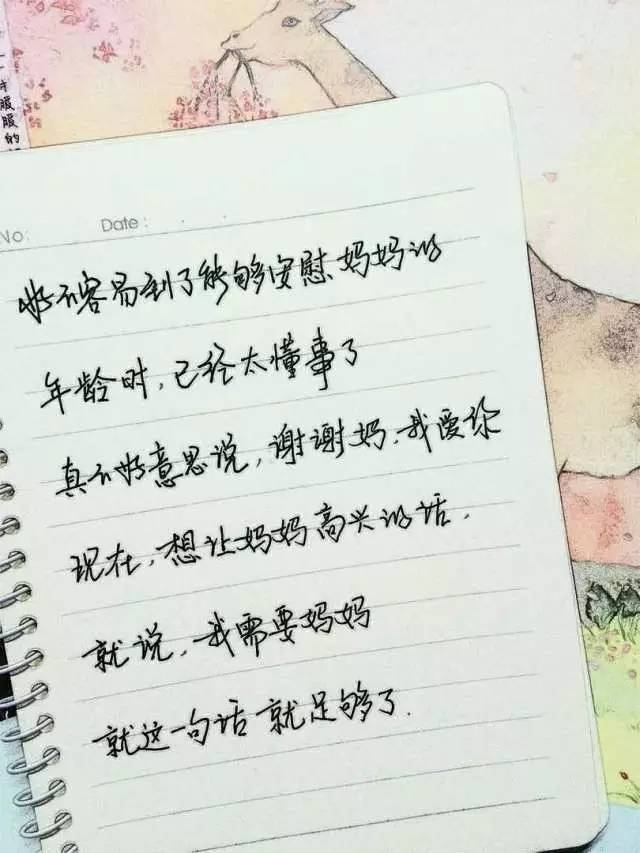 服服的
No:
Date:
好不容易到了能够安慰妈妈的
年龄时,已经太懂事了
真不好意思说,谢谢妈,我爱你
现在,想让妈妈高兴的话,
就说,我需要妈妈
就这一句话就足够了.